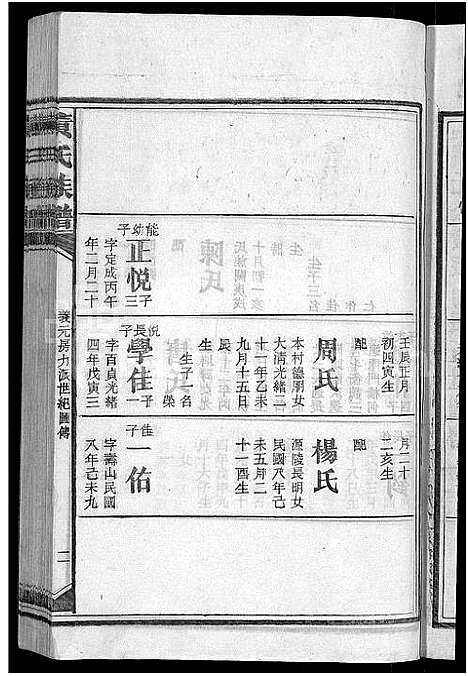 能幼子
正悅
子三
字定成丙午
年二月二十
壬辰正月
初四寅生
配
周氏
本村德朋女
大清光緒二
十一年乙未
九月十五日
辰
生子一名
榮
悅長子
學佳
子一
字百貞光緒
四年戊寅三
月二十
二亥生
配
楊氏
源陵長明女
民國八年己
未五月二
十一酉生
佳子
一佑
字壽山民國
八年己未九
黃氏族譜
養元房力派世紀圖傳
二